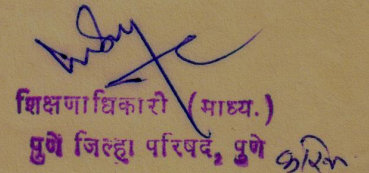 शिक्षणाधिकारी (माध्य.)
पुणें जिल्हा परिषद, पुणे